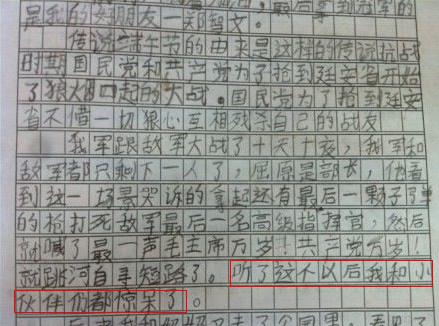 是我的好朋友一郑智文。
传说端午节的由来是这样的传说抗战
时期国民党和共产党为了抢到延安省开始
了狼火四起的大战。国民党为了抢到延安
省不惜一切狠心互相残杀自己的战友
我军跟敌军大战了十天十夜，我军和
敌军都只剩下一人了，屈原是部长，他看
到这一场景哭诉的拿起还有最后一颗子弹
的枪打死敌军最后一名高级指挥官，然后
就喊了最一声毛主席万岁！共产党万岁！
就跳河自寻短路了。听了这个以后我和小
伙伴们都惊呆了。